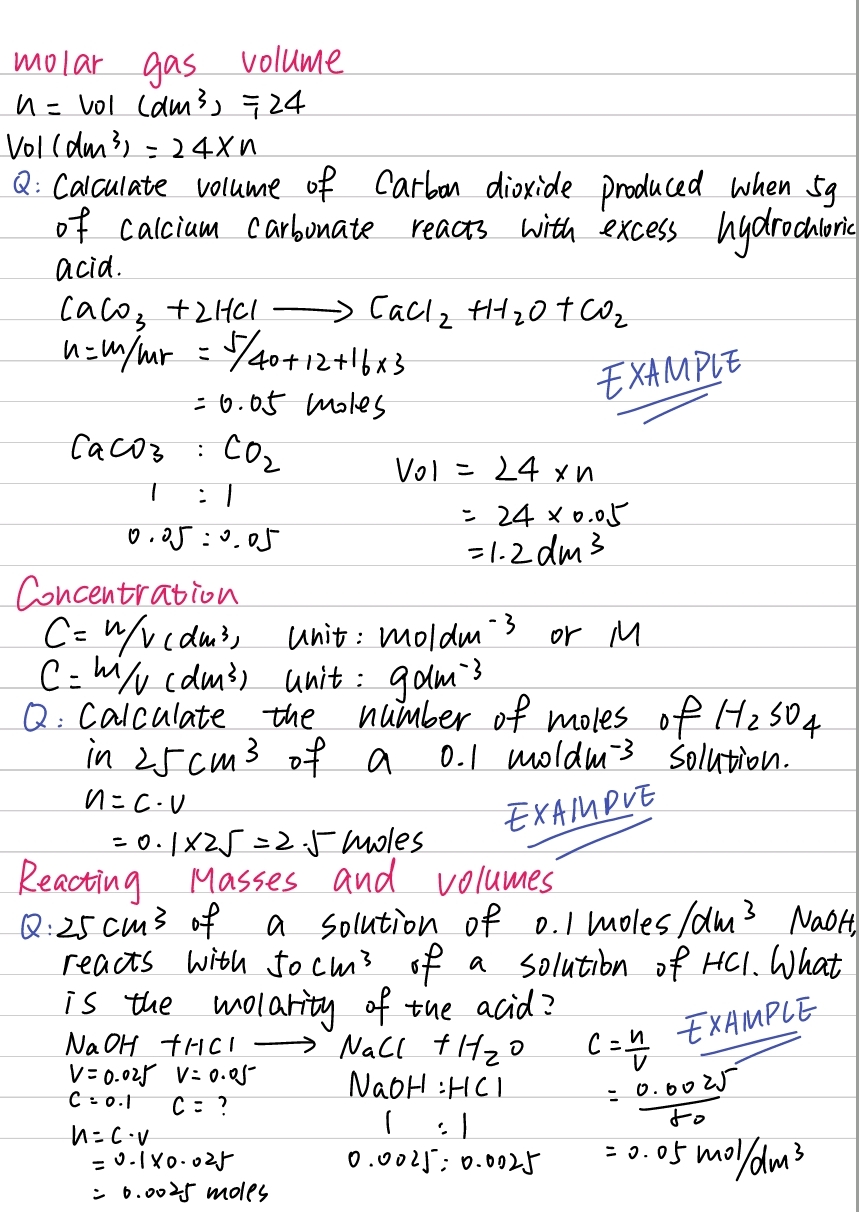 molar gas volume
n = vol (dm³) ÷ 24
Vol (dm³) = 24 × n
Q: Calculate volume of Carbon dioxide produced when 5g
of calcium carbonate reacts with excess hydrochloric
acid.
CaCO₃ + 2HCl ⟶ CaCl₂ + H₂O + CO₂
n = m/mr = 5/40+12+16×3
= 0.05 moles
EXAMPLE
CaCO₃ : CO₂
1 : 1
0.05 : 0.05
Vol = 24 × n
= 24 × 0.05
= 1.2 dm³
Concentration
C = n/v (dm³) unit : moldm⁻³ or M
C = m/v (dm³) unit : gdm⁻³
Q: Calculate the number of moles of H₂SO₄
in 25cm³ of a 0.1 moldm⁻³ solution.
n = c·v
= 0.1×25 = 2.5 moles
EXAMPLE
Reacting Masses and volumes
Q: 25 cm³ of a solution of 0.1 moles/dm³ NaOH,
reacts with 50 cm³ of a solution of HCl. What
is the molarity of the acid?
EXAMPLE
NaOH + HCl ⟶ NaCl + H₂O
V = 0.025 V = 0.05
C = 0.1 C = ?
n = c·v
= 0.1×0.025
= 0.0025 moles
NaOH : HCl
1 : 1
0.0025 : 0.0025
C = n/v
= 0.0025/50
= 0.05 mol/dm³